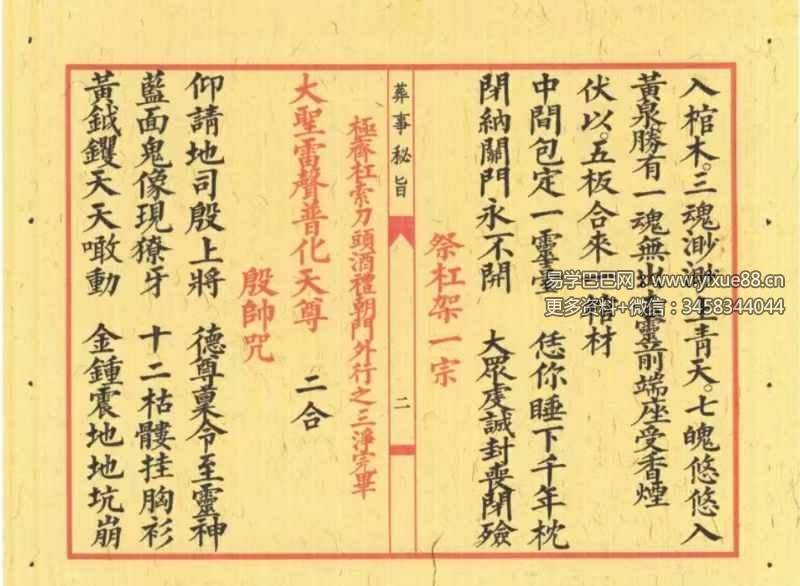 入棺木。三魂渺渺上青天。七魄悠悠入
黃泉勝有一魂無 靈前端座受香煙
伏以。五板合來 材
中間包定一靈  恁你睡下千年枕
閉納關門永不開 大眾虔誠封喪閉殮
祭杠架一宗
葬事秘旨
二
極齊杠索刀頭酒禮朝門外行之三淨完畢
大聖雷聲普化天尊 二合
殷帥咒
仰請地司殷上將 德尊稟令至靈神
藍面鬼像現獠牙 十二枯髏挂胸衫
黃鉞鑺天天噉動 金鍾震地地坑崩
易学巴巴网 www.yixue88.cn
更多资料+微信：3458344044